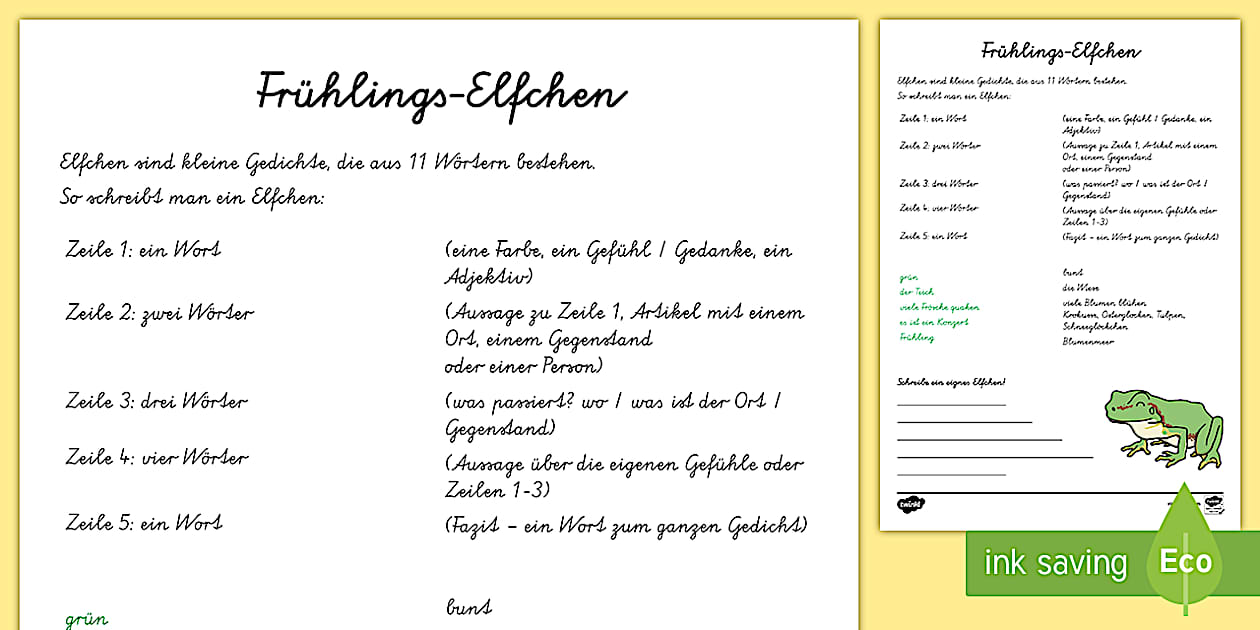 Frühlings-Elfchen
Elfchen sind kleine Gedichte, die aus 11 Wörtern bestehen.
So schreibt man ein Elfchen:
Zeile 1: ein Wort
(eine Farbe, ein Gefühl / Gedanke, ein
Adjektiv)
Zeile 2: zwei Wörter
(Aussage zu Zeile 1, Artikel mit einem
Ort, einem Gegenstand
oder einer Person)
Zeile 3: drei Wörter
(was passiert? wo / was ist der Ort /
Gegenstand)
Zeile 4: vier Wörter
(Aussage über die eigenen Gefühle oder
Zeilen 1-3)
Zeile 5: ein Wort
(Fazit – ein Wort zum ganzen Gedicht)
grün
bunt
Frühlings-Elfchen
Elfchen sind kleine Gedichte, die aus 11 Wörtern bestehen.
So schreibt man ein Elfchen:
Zeile 1: ein Wort
(eine Farbe, ein Gefühl / Gedanke, ein
Adjektiv)
Zeile 2: zwei Wörter
(Aussage zu Zeile 1, Artikel mit einem
Ort, einem Gegenstand
oder einer Person)
Zeile 3: drei Wörter
(was passiert? wo / was ist der Ort /
Gegenstand)
Zeile 4: vier Wörter
(Aussage über die eigenen Gefühle oder
Zeilen 1-3)
Zeile 5: ein Wort
(Fazit – ein Wort zum ganzen Gedicht)
grün
der Teich
viele Frösche quaken
es ist ein Konzert
Frühling
bunt
die Wiese
viele Blumen blühen
Krokusse, Osterglocken, Tulpen,
Schneeglöckchen
Blumenmeer
Schreibe ein eigenes Elfchen!
twinkl
ink saving
Eco